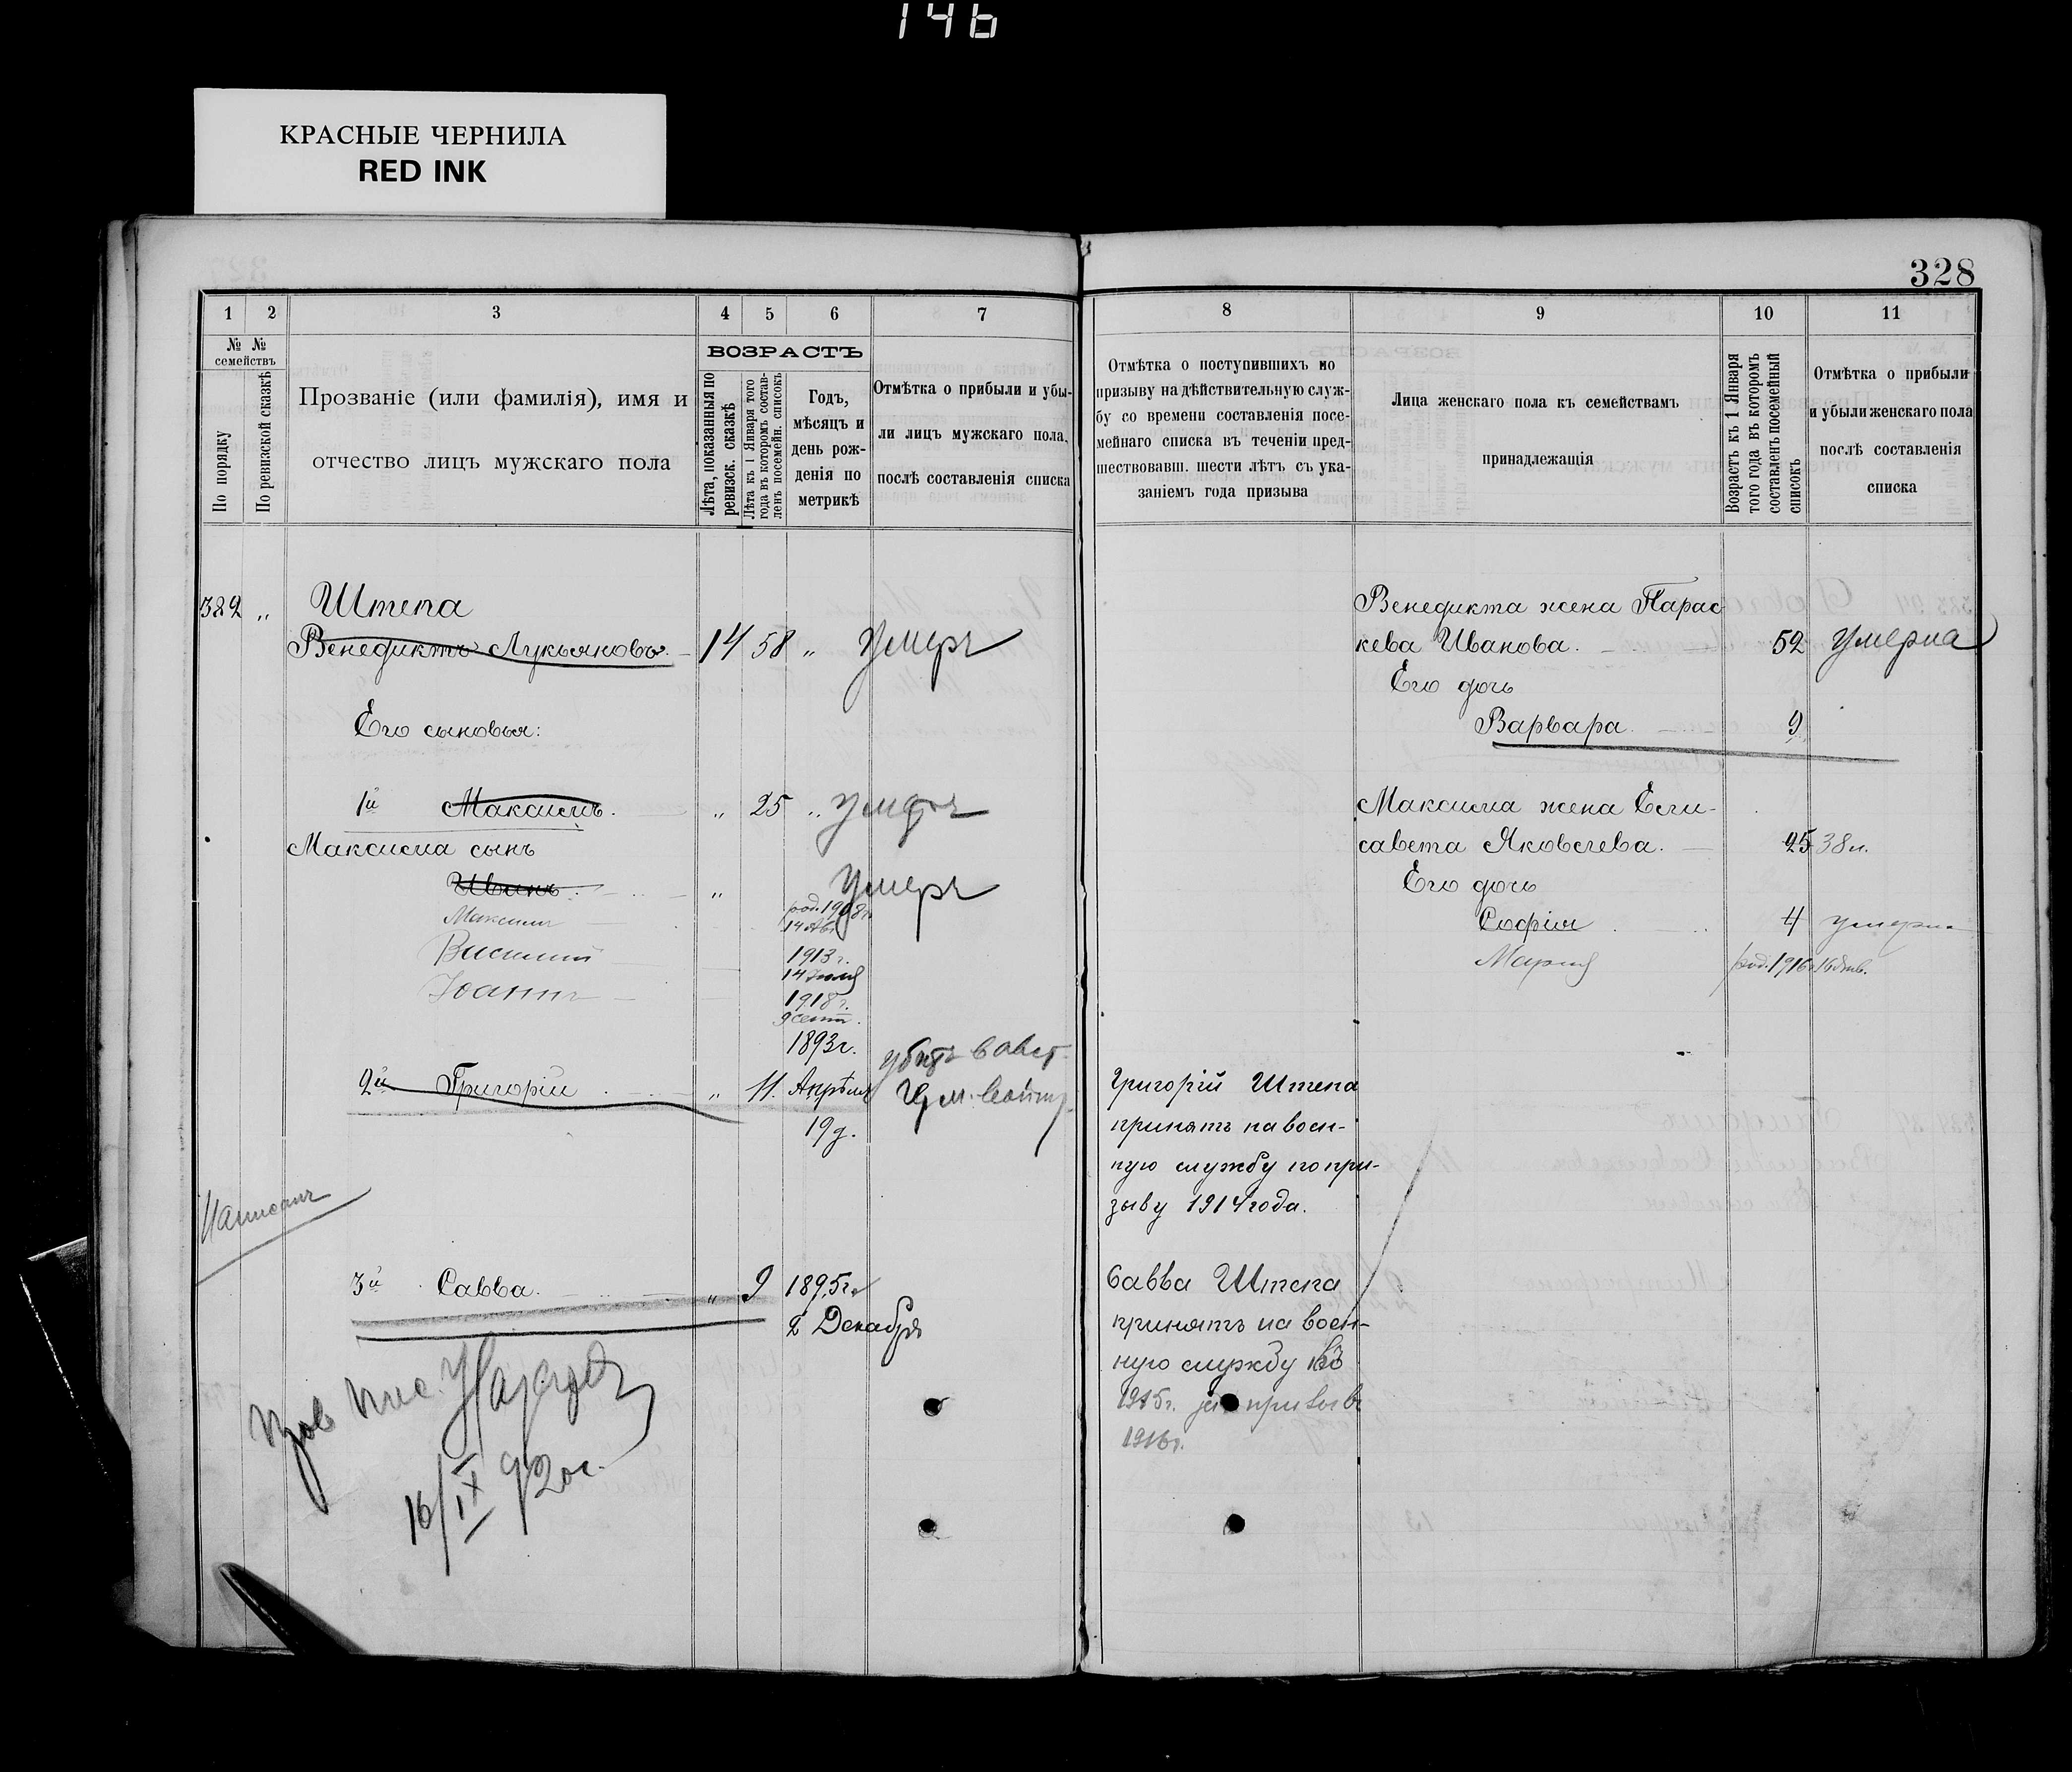 146
КРАСНЫЕ ЧЕРНИЛА
RED INK
328
1 2 3 4 5 6 7
№ №
семействъ
По порядку
По ревизской сказкѣ
Прозваніе (или фамилія), имя и
отчество лицъ мужскаго пола
ВОЗРАСТЪ
Лѣта, показанныя по
ревизск. сказкѣ
Лѣта къ 1 Января того
года въ которомъ состав-
ленъ посемейн. списокъ
Годъ,
мѣсяцъ и
день рож-
денія по
метрикѣ
Отмѣтка о прибыли и убы-
ли лицъ мужскаго пола,
послѣ составленія списка
382 „ Штепа
Венедиктъ Лукьяновъ. 14 58 „ Умеръ
Его сыновья:
1й Максимъ. „ 25 „ умеръ
Максима сынъ
Иванъ. „ Умеръ
Максимъ род. 1908г.
14 Авг
Василий 1913г.
14 Июля
Иоаннъ 1918г.
9 сент.
1893г.
2й Григорій „ 11. Апрѣля
19 д.
убитъ в авст.
Герм. войну
Написанъ
3й Савва. „ 9 1895г.
2 Декабря
16/IX 920г.
8 9 10 11
Отмѣтка о поступившихъ по
призыву на дѣйствительную служ-
бу со времени составленія посе-
мейнаго списка въ теченіи пред-
шествовавш. шести лѣтъ съ ука-
заніемъ года призыва
Лица женскаго пола къ семействамъ
принадлежащія
Возрастъ къ 1 Января
того года въ которомъ
составленъ посемейный
списокъ
Отмѣтка о прибыли
и убыли женскаго пола
послѣ составленія
списка
Венедикта жена Парас
кева Иванова. 52 умерла
Его дочь
Варвара. 9
Максима жена Ели-
савета Яковлева. 25 38 л.
Его дочь
Софія 4 умерла
Мария род. 1916г 16 янв.
Григорій Штепа
принятъ на воен-
ную службу по при-
зыву 1914 года.
Савва Штепа
принятъ на воен-
ную службу въ
1915г. призывъ
1916г.